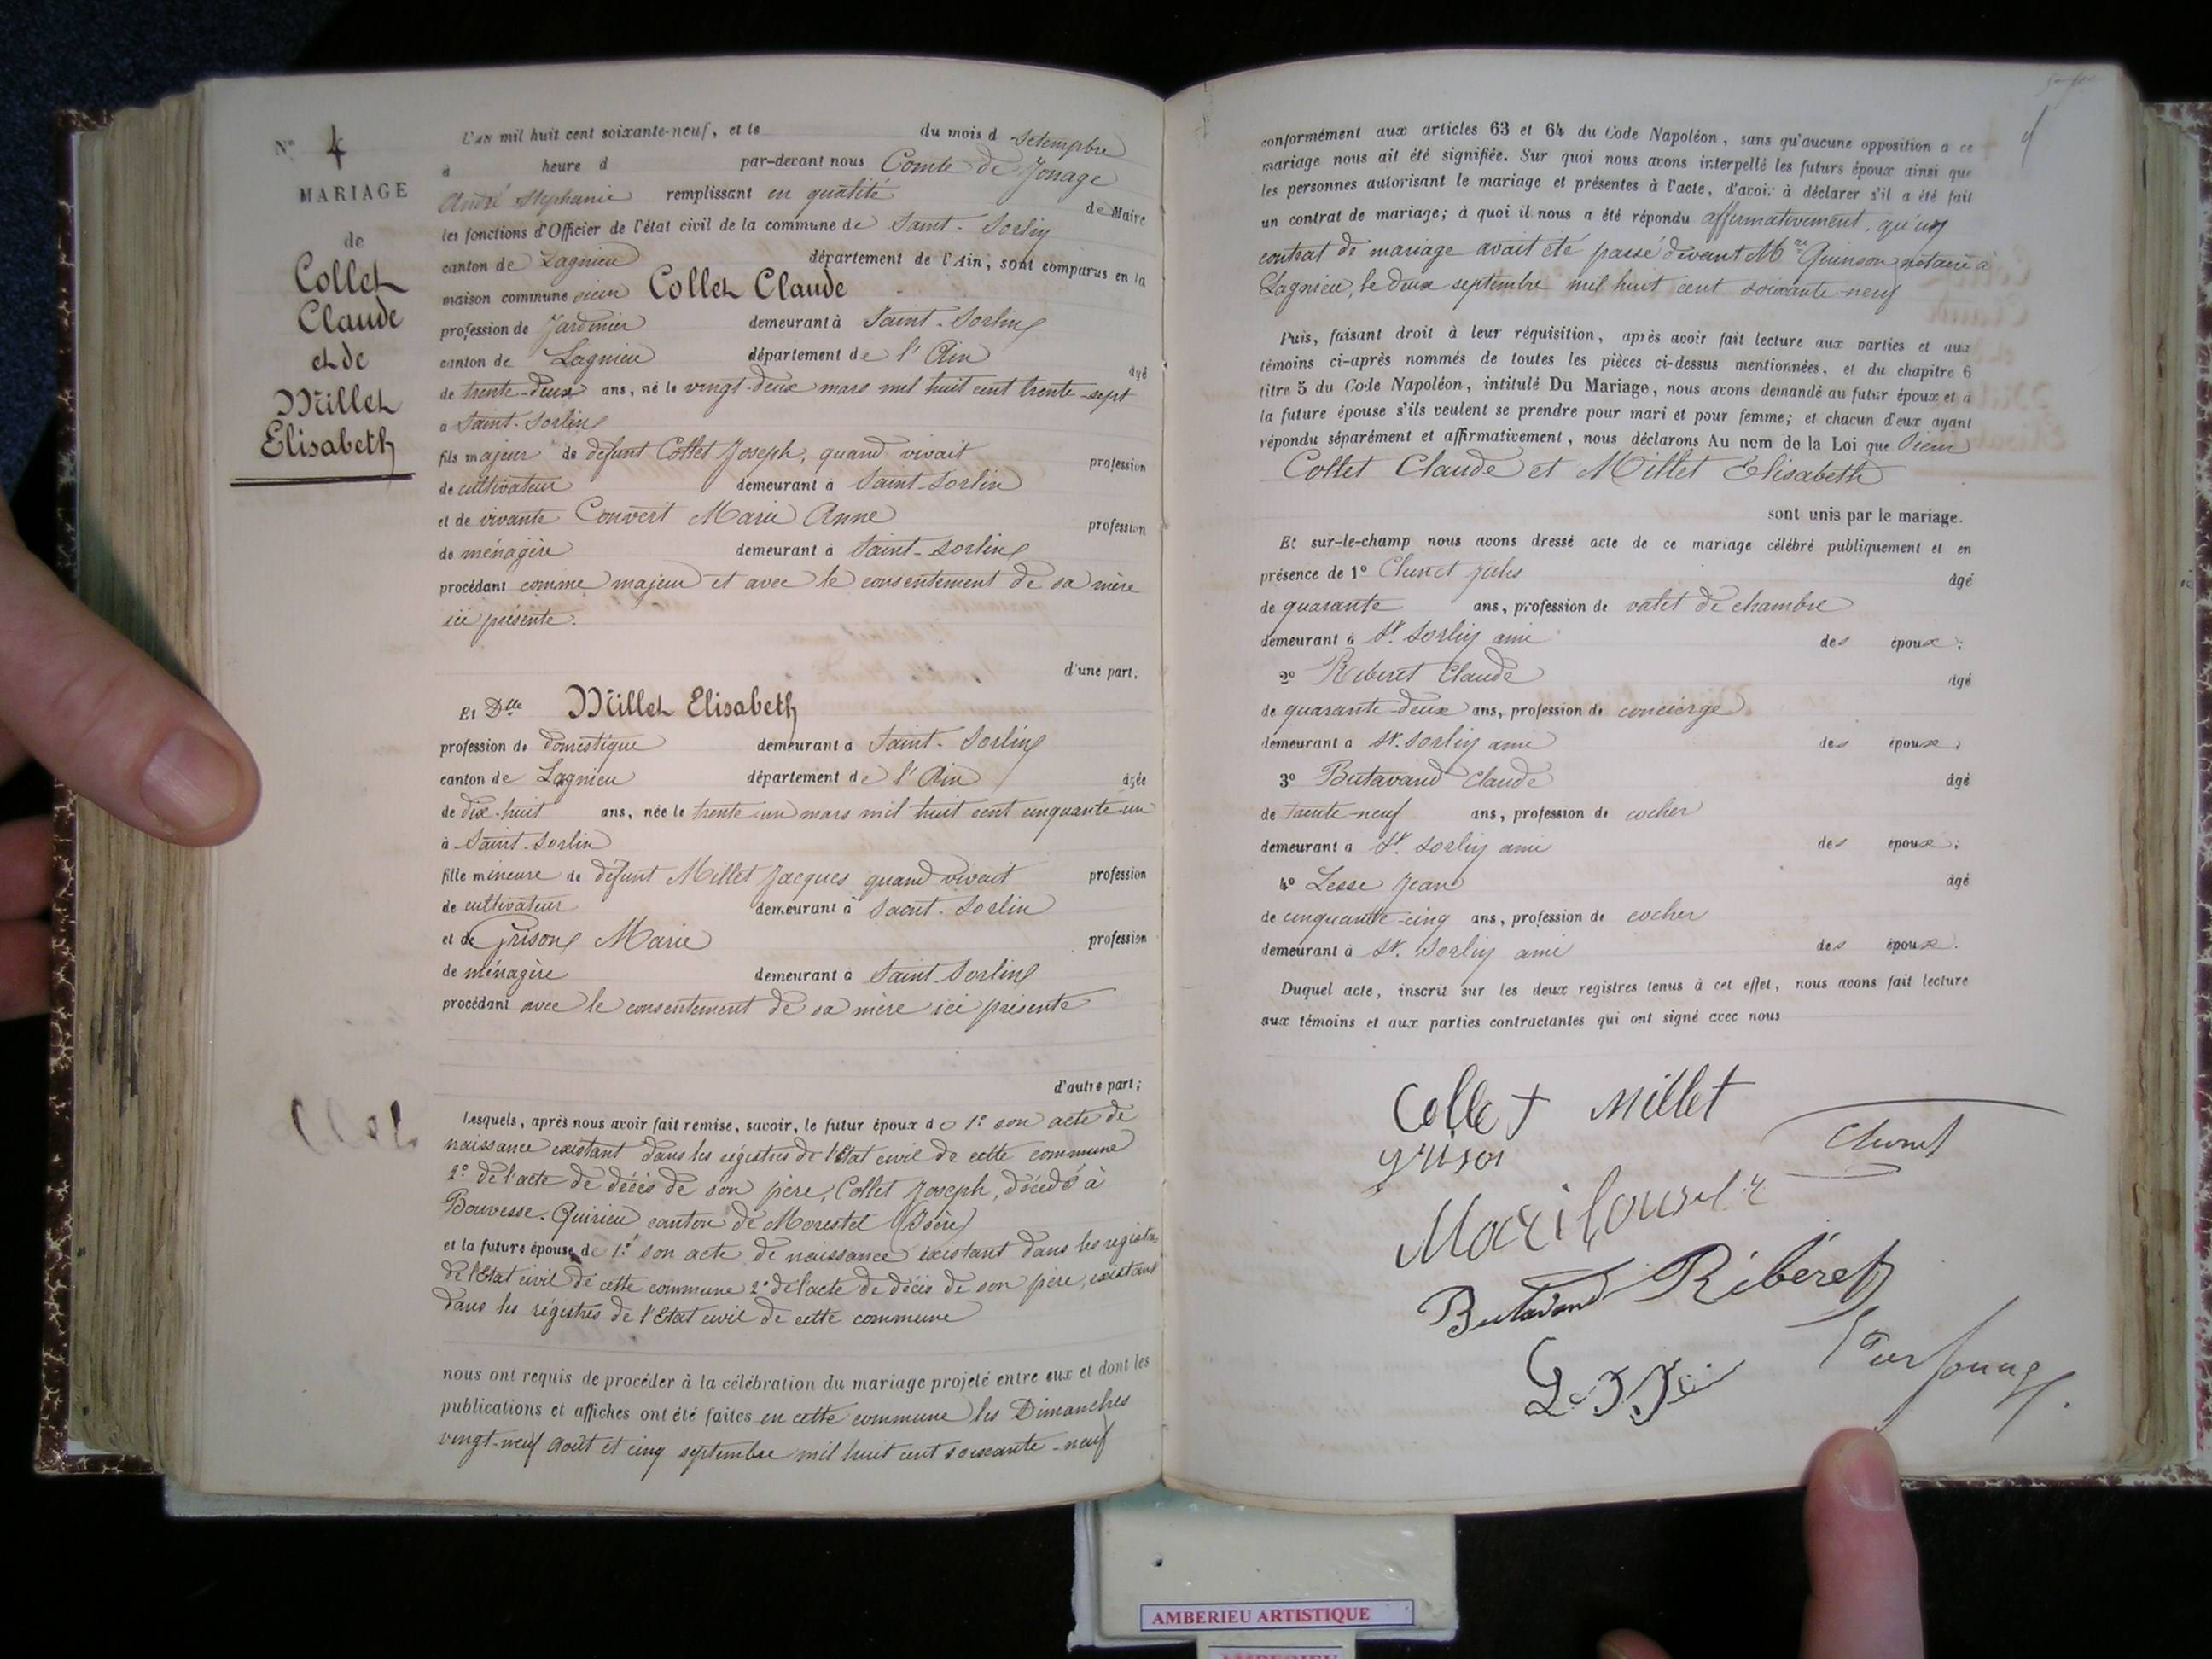 N° 4
MARIAGE
de
Collet
Claude
et de
Millet
Elisabeth
L'an mil huit cent soixante-neuf, et le du mois d Setempbre
à heure d par-devant nous Comte de Jonage
André Stephanie remplissant en qualité de Maire
les fonctions d'Officier de l'état civil de la commune de Saint-Sorlin
canton de Lagnieu département de l'Ain, sont comparus en la
maison commune sieur Collet Claude
profession de Jardinier demeurant à Saint-Sorlin
canton de Lagnieu département de l'Ain âgé
de trente-deux ans, né le vingt-deux mars mil huit cent trente-sept
à Saint-Sorlin
fils majeur de défunt Collet Joseph, quand vivait profession
de cultivateur demeurant à Saint-Sorlin
et de vivante Convert Marie Anne profession
de ménagère demeurant à Saint-Sorlin
procédant comme majeur et avec le consentement de sa mère
ici présente.
d'une part;
Et Dlle Millet Elisabeth
profession de domestique demeurant à Saint-Sorlin
canton de Lagnieu département de l'Ain âgée
de dix-huit ans, née le trente-un mars mil huit cent cinquante-un
à Saint-Sorlin
fille mineure de défunt Millet Jacques quand vivait profession
de cultivateur demeurant à Saint-Sorlin
et de Grison Marie profession
de ménagère demeurant à Saint-Sorlin
procédant avec le consentement de sa mère ici présente
d'autre part;
Lesquels, après nous avoir fait remise, savoir, le futur époux de 1° son acte de
naissance existant dans les régistres de l'Etat civil de cette commune
2° de l'acte de décès de son père, Collet Joseph, décédé à
Bouvesse-Quirieu canton de Morestel (Isère)
et la future épouse de 1° son acte de naissance existant dans les registres
de l'Etat civil de cette commune 2° de l'acte de décès de son père, existant
dans les régistres de l'Etat civil de cette commune
nous ont requis de procéder à la célébration du mariage projeté entre eux et dont les
publications et affiches ont été faites en cette commune les Dimanches
vingt-neuf août et cinq septembre mil huit cent soixante-neuf
conformément aux articles 63 et 64 du Code Napoléon, sans qu'aucune opposition a ce
mariage nous ait été signifiée. Sur quoi nous avons interpellé les futurs époux ainsi que
les personnes autorisant le mariage et présentes à l'acte, d'avoir à déclarer s'il a été fait
un contrat de mariage; à quoi il nous a été répondu affirmativement, qu'un
contrat de mariage avait été passé devant Mre Quinson notaire à
Lagnieu, le deux septembre mil huit cent soixante-neuf
Puis, faisant droit à leur réquisition, après avoir fait lecture aux parties et aux
témoins ci-après nommés de toutes les pièces ci-dessus mentionnées, et du chapitre 6
titre 5 du Code Napoléon, intitulé Du Mariage, nous avons demandé au futur époux et à
la future épouse s'ils veulent se prendre pour mari et pour femme; et chacun d'eux ayant
répondu séparément et affirmativement, nous déclarons Au nom de la Loi que Sieur
Collet Claude et Millet Elisabeth
sont unis par le mariage.
Et sur-le-champ nous avons dressé acte de ce mariage célébré publiquement et en
présence de 1° Jules âgé
de quarante ans, profession de valet de chambre
demeurant à St. Sorlin ami des époux;
2° Riberet Claude âgé
de quarante-deux ans, profession de concierge
demeurant à St. Sorlin ami des époux;
3° Butavand Claude âgé
de trente-neuf ans, profession de cocher
demeurant à St. Sorlin ami des époux;
4° Lesse Jean âgé
de cinquante-cinq ans, profession de cocher
demeurant à St. Sorlin ami des époux.
Duquel acte, inscrit sur les deux registres tenus à cet effet, nous avons fait lecture
aux témoins et aux parties contractantes qui ont signé avec nous
Collet Millet
grison
Butavand Ribéret
AMBERIEU ARTISTIQUE